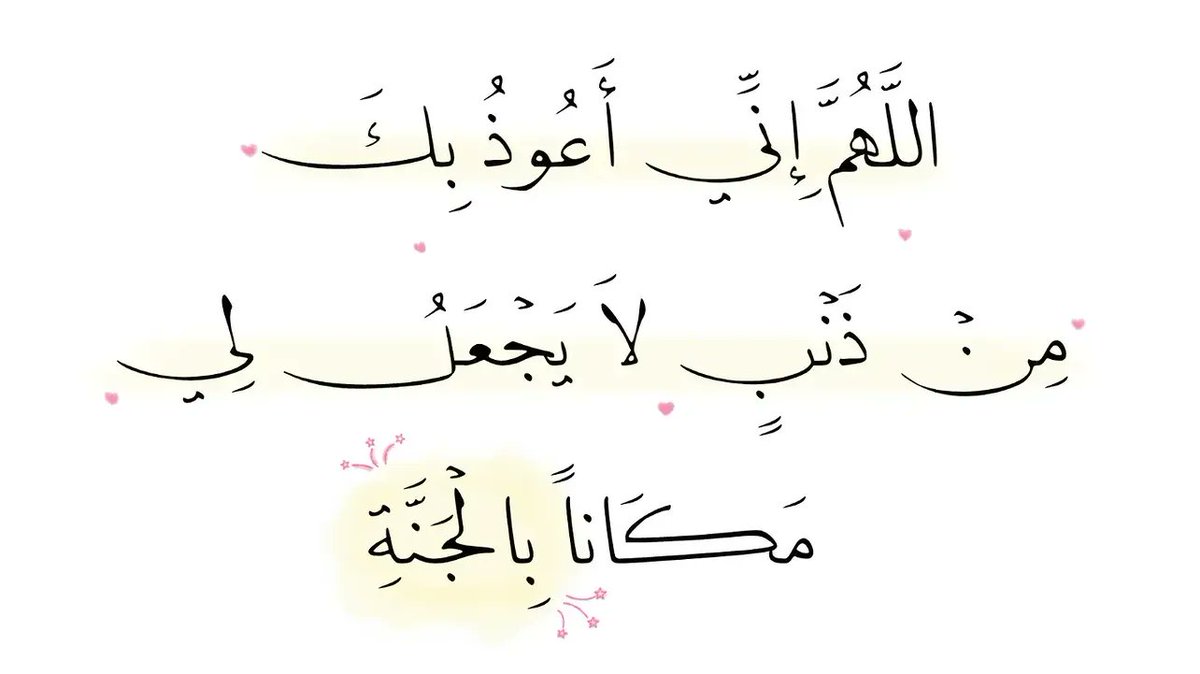 اللَّهُمَّ إِنِّي أَعُوذُ بِكَ
مِنْ ذَنْبٍ لَا يَجْعَلُ لِي
مَكَاناً بِالْجَنَّةِ